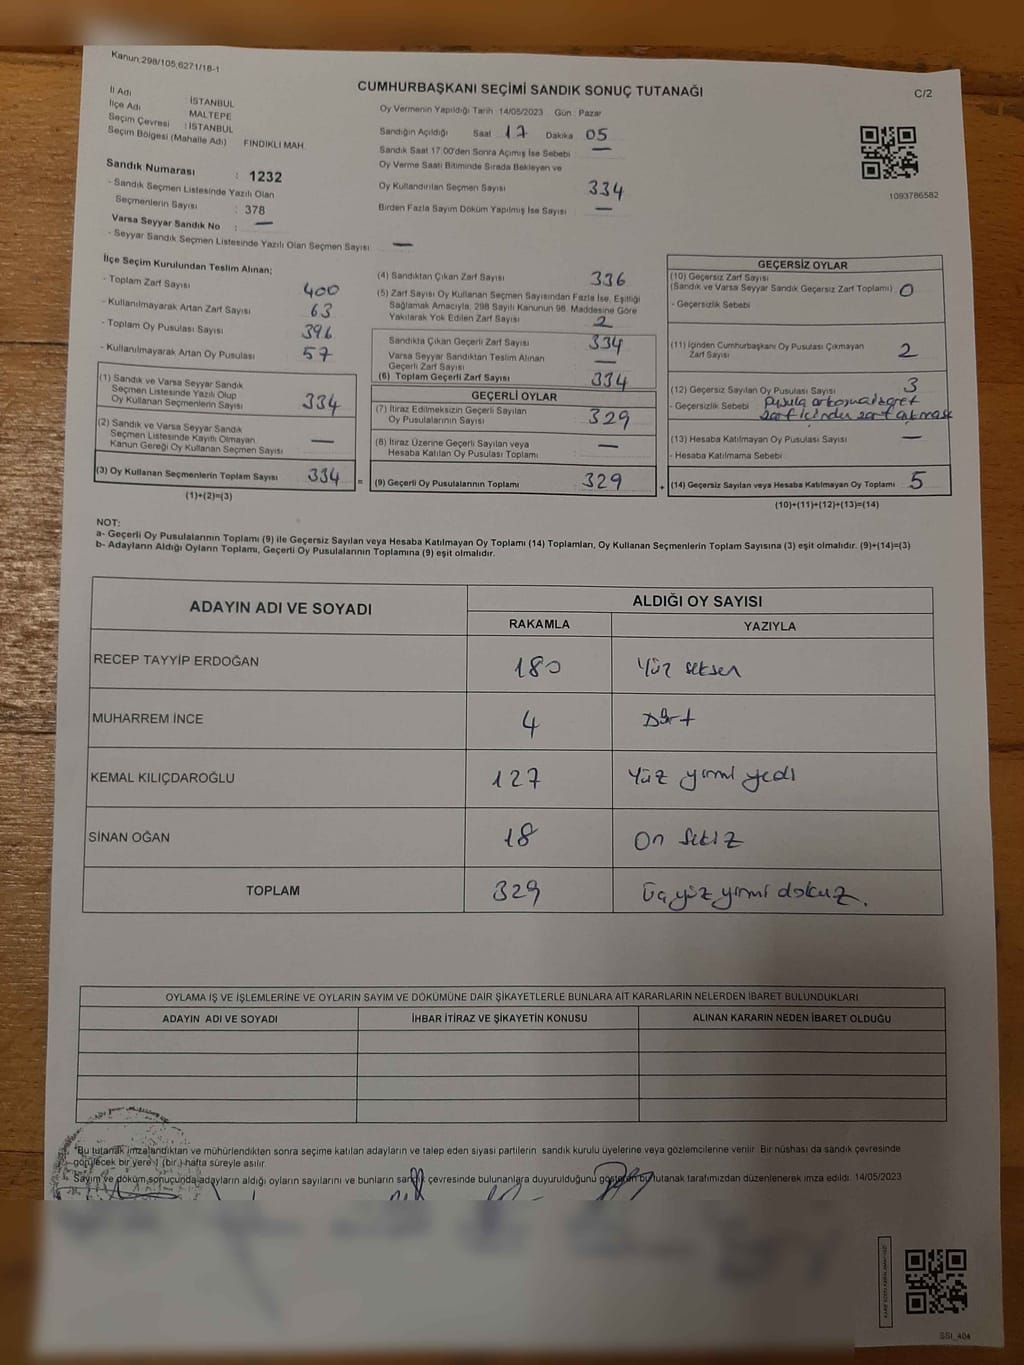 Kanun:298/105,6271/18-1
CUMHURBAŞKANI SEÇİMİ SANDIK SONUÇ TUTANAĞI
C/2
İl Adı İSTANBUL
İlçe Adı MALTEPE
Seçim Çevresi : İSTANBUL
Seçim Bölgesi (Mahalle Adı) FINDIKLI MAH.
Oy Vermenin Yapıldığı Tarih 14/05/2023 Gün : Pazar
Sandığın Açıldığı Saat 17 Dakika 05
Sandık Saat 17:00'den Sonra Açımış İse Sebebi —
Oy Verme Saati Bitiminde Sırada Bekleyen ve
Oy Kullandırılan Seçmen Sayısı 334
Birden Fazla Sayım Döküm Yapılmış İse Sayısı —
1093786582
Sandık Numarası : 1232
- Sandık Seçmen Listesinde Yazılı Olan
Seçmenlerin Sayısı : 378
Varsa Seyyar Sandık No : —
- Seyyar Sandık Seçmen Listesinde Yazılı Olan Seçmen Sayısı: —
İlçe Seçim Kurulundan Teslim Alınan;
- Toplam Zarf Sayısı 400
- Kullanılmayarak Artan Zarf Sayısı 63
- Toplam Oy Pusulası Sayısı 396
- Kullanılmayarak Artan Oy Pusulası 57
(1) Sandık ve Varsa Seyyar Sandık
Seçmen Listesinde Yazılı Olup
Oy Kullanan Seçmenlerin Sayısı 334
(2) Sandık ve Varsa Seyyar Sandık
Seçmen Listesinde Kayıtlı Olmayan
Kanun Gereği Oy Kullanan Seçmen Sayısı —
(3) Oy Kullanan Seçmenlerin Toplam Sayısı 334 =
(1)+(2)=(3)
(4) Sandıktan Çıkan Zarf Sayısı 336
(5) Zarf Sayısı Oy Kullanan Seçmen Sayısından Fazla İse, Eşitliği
Sağlamak Amacıyla, 298 Sayılı Kanunun 98. Maddesine Göre
Yakılarak Yok Edilen Zarf Sayısı 2
Sandıkta Çıkan Geçerli Zarf Sayısı 334
Varsa Seyyar Sandıktan Teslim Alınan
Geçerli Zarf Sayısı —
(6) Toplam Geçerli Zarf Sayısı 334
GEÇERLİ OYLAR
(7) İtiraz Edilmeksizin Geçerli Sayılan
Oy Pusulalarının Sayısı 329
(8) İtiraz Üzerine Geçerli Sayılan veya
Hesaba Katılan Oy Pusulası Toplamı —
(9) Geçerli Oy Pusulalarının Toplamı 329 +
GEÇERSİZ OYLAR
(10) Geçersiz Zarf Sayısı
(Sandık ve Varsa Seyyar Sandık Geçersiz Zarf Toplamı) 0
- Geçersizlik Sebebi
(11) İçinden Cumhurbaşkanı Oy Pusulası Çıkmayan
Zarf Sayısı 2
(12) Geçersiz Sayılan Oy Pusulası Sayısı 3
- Geçersizlik Sebebi Pusula
zarf içinden zarf çıkması
(13) Hesaba Katılmayan Oy Pusulası Sayısı —
- Hesaba Katılmama Sebebi
(14) Geçersiz Sayılan veya Hesaba Katılmayan Oy Toplamı 5
(10)+(11)+(12)+(13)=(14)
NOT:
a- Geçerli Oy Pusulalarının Toplamı (9) ile Geçersiz Sayılan veya Hesaba Katılmayan Oy Toplamı (14) Toplamları, Oy Kullanan Seçmenlerin Toplam Sayısına (3) eşit olmalıdır. (9)+(14)=(3)
b- Adayların Aldığı Oyların Toplamı, Geçerli Oy Pusulalarının Toplamına (9) eşit olmalıdır.
ADAYIN ADI VE SOYADI ALDIĞI OY SAYISI
RAKAMLA YAZIYLA
RECEP TAYYİP ERDOĞAN 180 Yüz seksen
MUHARREM İNCE 4 Dört
KEMAL KILIÇDAROĞLU 127 Yüz yirmi yedi
SİNAN OĞAN 18 On sekiz
TOPLAM 329 Üç yüz yirmi dokuz.
OYLAMA İŞ VE İŞLEMLERİNE VE OYLARIN SAYIM VE DÖKÜMÜNE DAİR ŞİKAYETLERLE BUNLARA AİT KARARLARIN NELERDEN İBARET BULUNDUKLARI
ADAYIN ADI VE SOYADI İHBAR İTİRAZ VE ŞİKAYETİN KONUSU ALINAN KARARIN NEDEN İBARET OLDUĞU
*Bu tutanak imzalandıktan ve mühürlendikten sonra seçime katılan adayların ve talep eden siyasi partilerin sandık kurulu üyelerine veya gözlemcilerine verilir. Bir nüshası da sandık çevresinde
görülecek bir yere 1 (bir) hafta süreyle asılır.
Sayım ve döküm sonucunda adayların aldığı oyların sayılarını ve bunların sandık çevresinde bulunanlara duyurulduğunu gösteren bu tutanak tarafımızdan düzenlenerek imza edildi. 14/05/2023
SSI_404